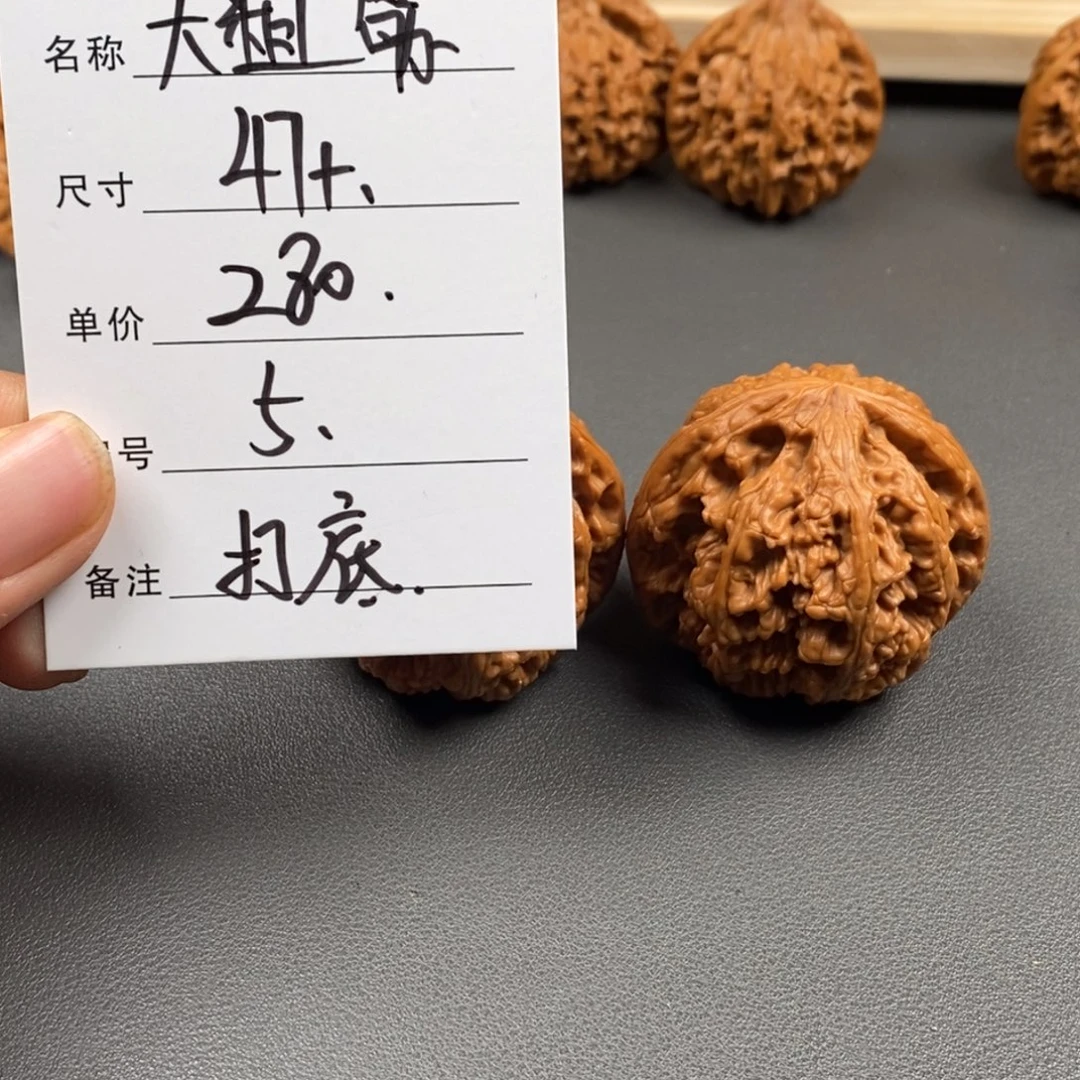 名称 大粗
尺寸 47+.
单价 280.
号 5.
备注 打底.